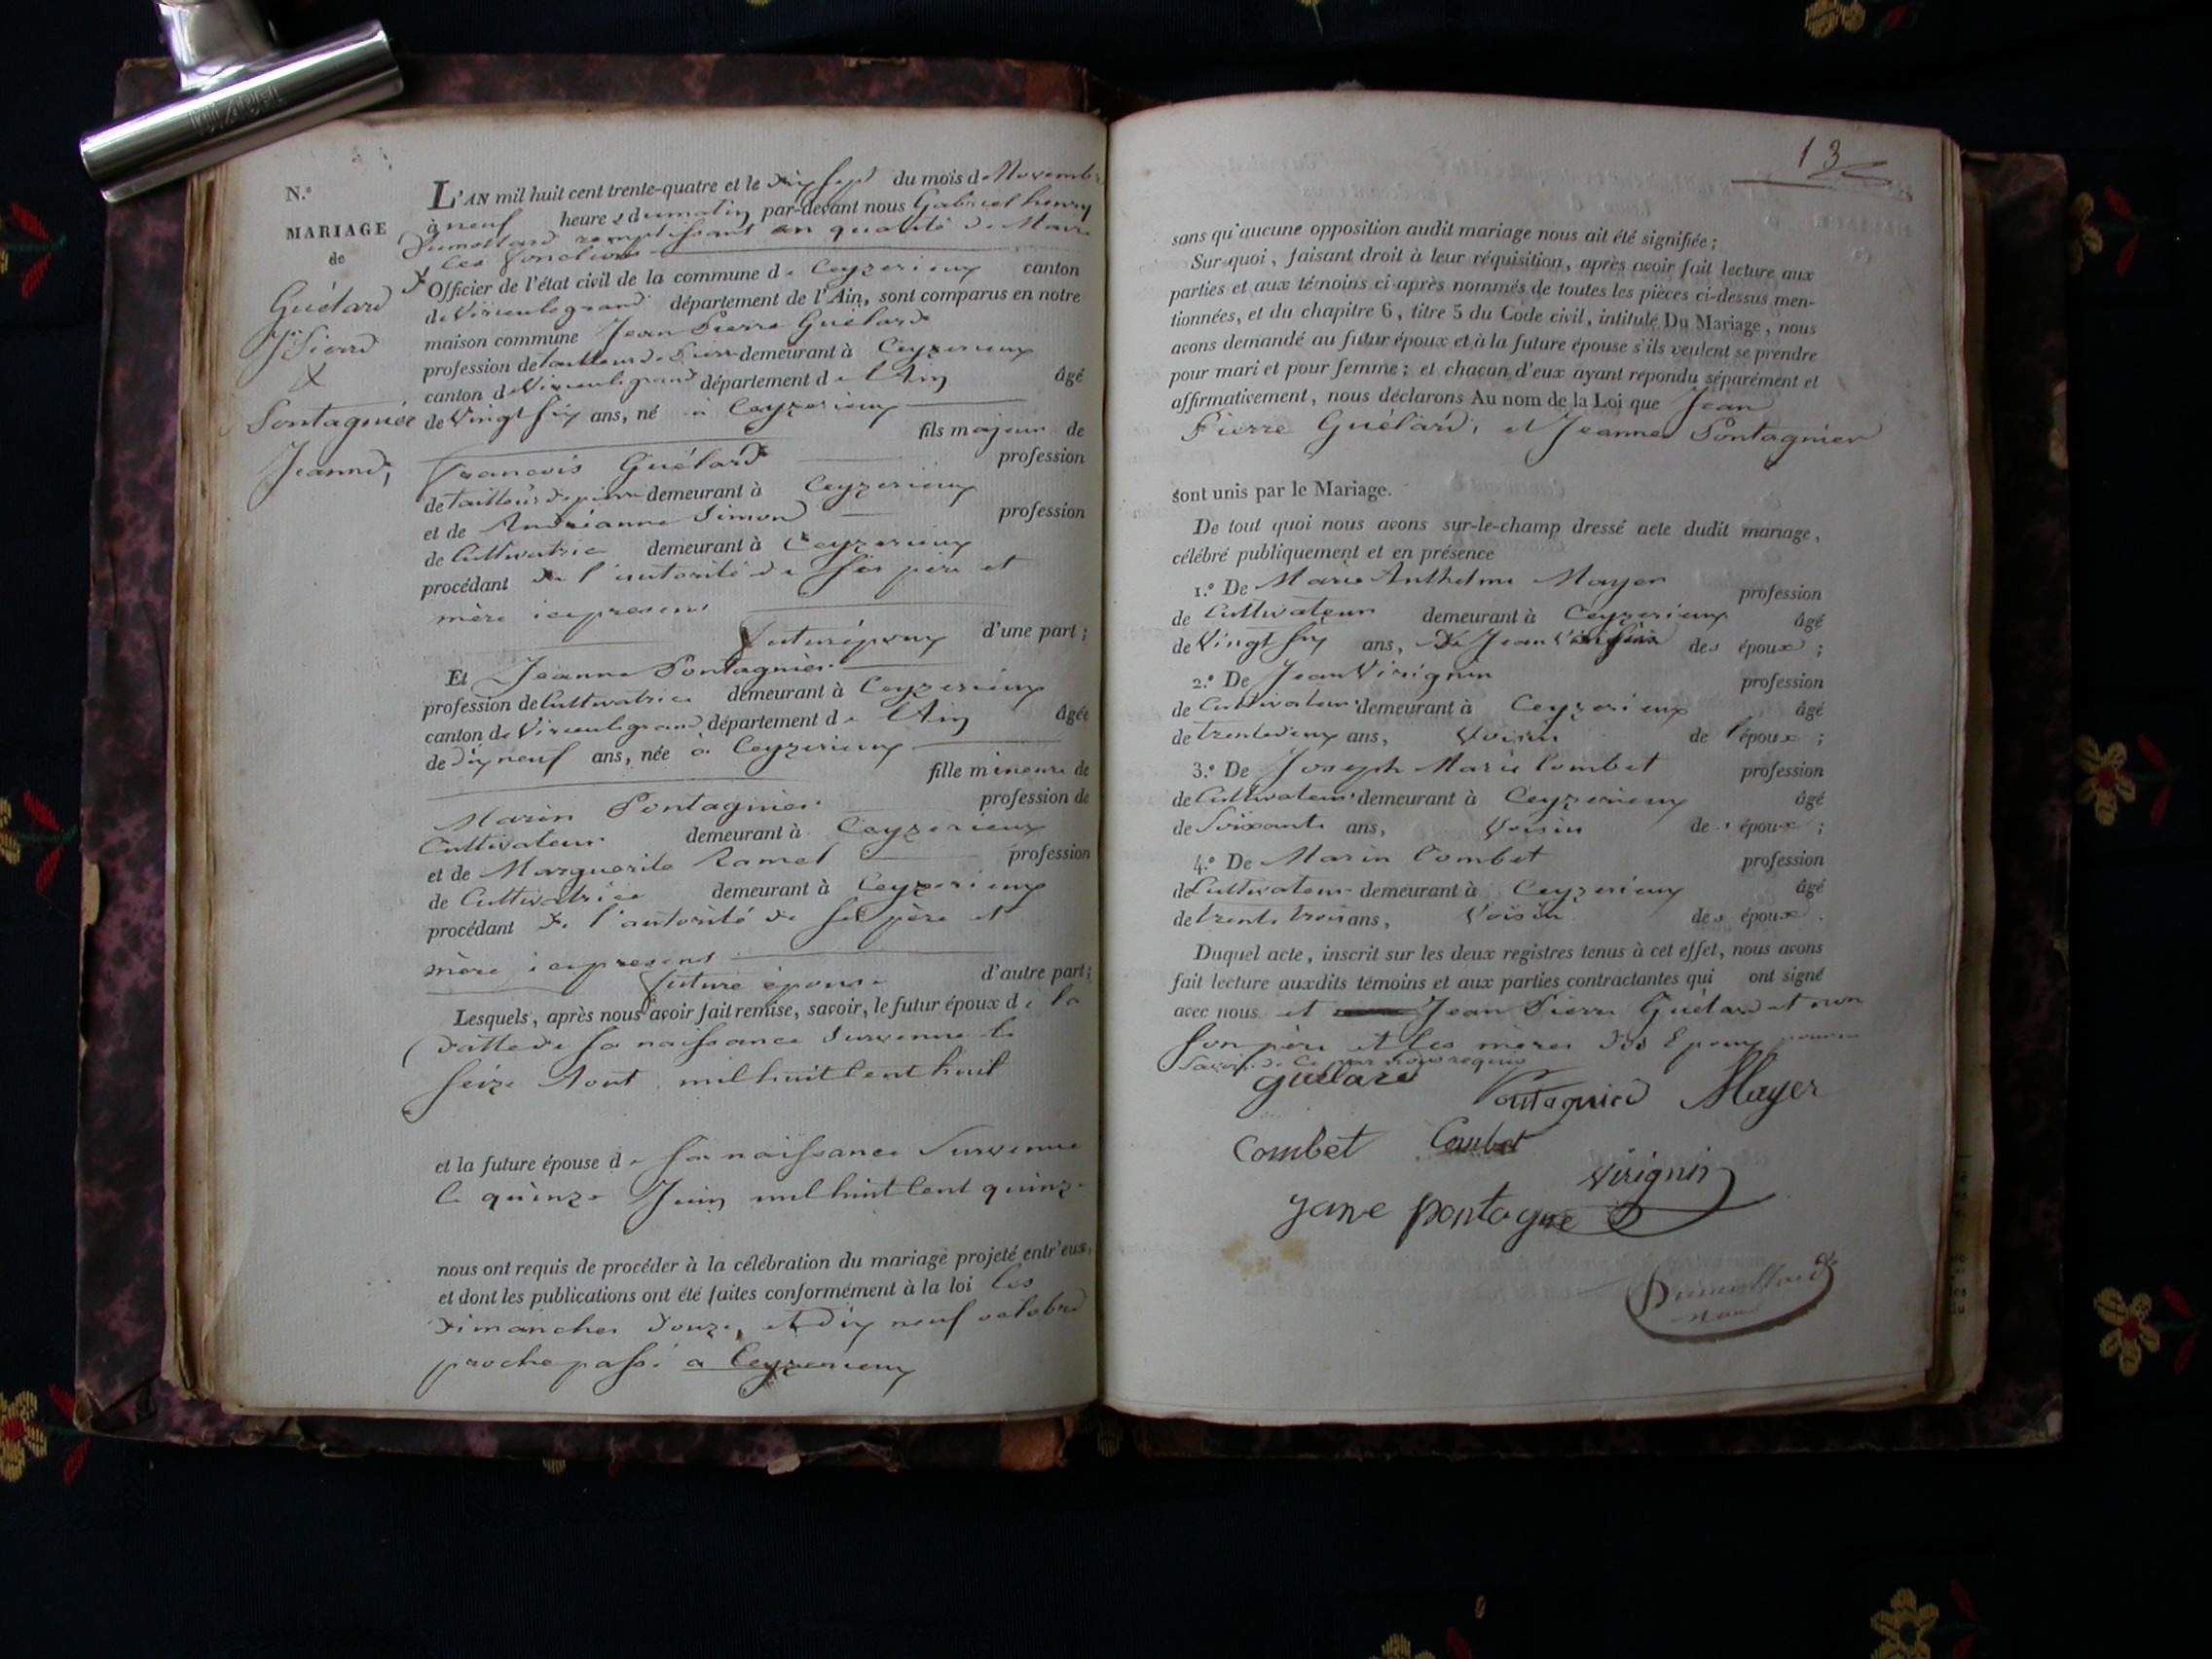 N.º
MARIAGE
de
Guélard
Jn Pierre
&
Pontagnier
Jeanne,
L'AN mil huit cent trente-quatre et le dix sept du mois de Novembre
à neuf heures du matin par-devant nous Gabriel henry
Dumollard remplissant en qualité de Maire
les fonctions
d'Officier de l'état civil de la commune de Ceyzerieux canton
de Virieulegrand département de l'Ain, sont comparus en notre
maison commune Jean Pierre Guélard
profession de tailleur de Pierre demeurant à Ceyzerieux
canton de Virieulegrand département de l'Ain âgé
de Vingt six ans, né à Ceyzerieux
fils majeur de
François Guélard profession
de tailleur de pierre demeurant à Ceyzerieux
et de Andréanne Simond profession
de Cultivatrice demeurant à Ceyzerieux
procédant de l'autorité de ses père et
mère icy présens
futur époux d'une part;
Et Jeanne Pontagnier
profession de Cultivatrice demeurant à Ceyzerieux
canton de Virieulegrand département de l'Ain âgée
de dix neuf ans, née à Ceyzerieux
fille mineure de
Marin Pontagnier profession de
Cultivateur demeurant à Ceyzerieux
et de Marguerite Ramel profession
de Cultivatrice demeurant à Ceyzerieux
procédant de l'autorité de ses père et
mère icy présens
future épouse d'autre part;
Lesquels, après nous avoir fait remise, savoir, le futur époux de la
datte de sa naissance survenue le
seize Aout mil huit Cent huit
et la future épouse de sa naissance Survenue
le quinze Juin mil huit Cent quinze
nous ont requis de procéder à la célébration du mariage projeté entr'eux,
et dont les publications ont été faites conformément à la loi les
dimanches douze, et dix neuf octobre
proche passé a Ceyzerieux
13
sans qu'aucune opposition audit mariage nous ait été signifiée;
Sur quoi, faisant droit à leur réquisition, après avoir fait lecture aux
parties et aux témoins ci-après nommés de toutes les pièces ci-dessus men-
tionnées, et du chapitre 6, titre 5 du Code civil, intitulé Du Mariage, nous
avons demandé au futur époux et à la future épouse s'ils veulent se prendre
pour mari et pour femme; et chacun d'eux ayant répondu séparément et
affirmativement, nous déclarons Au nom de la Loi que Jean
Pierre Guélard, et Jeanne Pontagnier
sont unis par le Mariage.
De tout quoi nous avons sur-le-champ dressé acte dudit mariage,
célébré publiquement et en présence
1.º De Marie Anthelme Mayer profession
de Cultivateur demeurant à Ceyzerieux âgé
de Vingt six ans, des époux;
2.º De Jean Virignin profession
de Cultivateur demeurant à Ceyzerieux âgé
de trentedeux ans, Voisin de l'époux;
3.º De Joseph Marie Combet profession
de Cultivateur demeurant à Ceyzerieux âgé
de Soixante ans, Voisin des époux;
4.º De Marin Combet profession
de Cultivateur demeurant à Ceyzerieux âgé
de trente trois ans, Voisin des époux.
Duquel acte, inscrit sur les deux registres tenus à cet effet, nous avons
fait lecture auxdits témoins et aux parties contractantes qui ont signé
avec nous et Jean Pierre Guélard et non
son père et les mères des Epoux
Savoir de ce par nous requis
guelard
Pontagnier Mayer
Combet Combet
Virignin
jane pontagne
Dumollard
maire